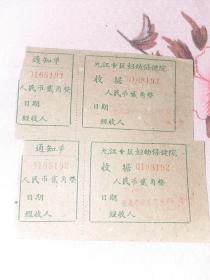 通知单
0188193
人民币贰角整
日期
经收人
九江专区妇幼保健院
收据 0188193
人民币贰角整
日期
经收人
通知单
0188192
人民币贰角整
日期
经收人
九江专区妇幼保健院
收据 0188192
人民币贰角整
日期
经收人